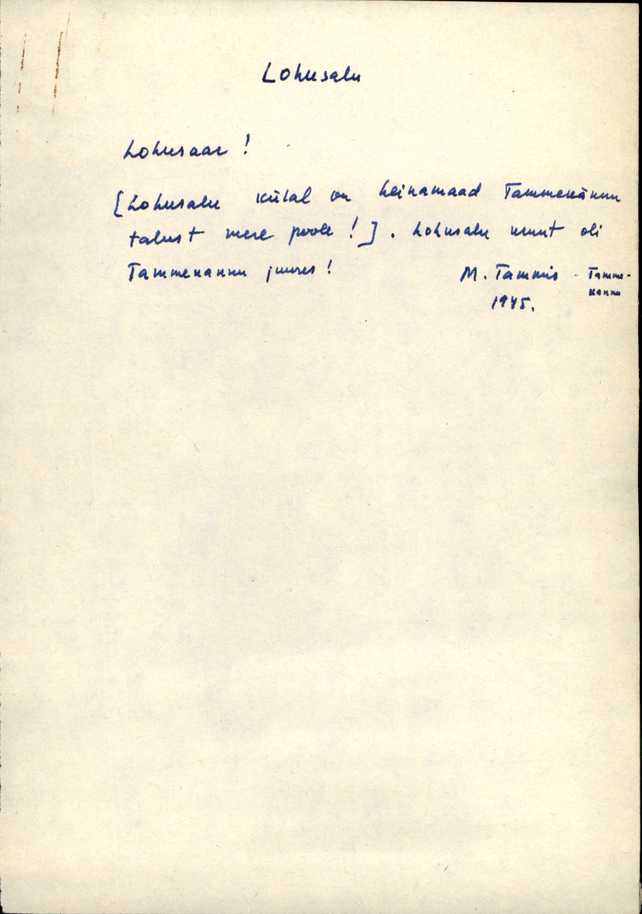 Lohusalu
Lohusaar!
[Lohusalu külal on heinamaad Tammenännu
talust mere poole!]. Lohusalu
oli
Tammenannu juures! M. Tammis - Tamme-
nannu
1945.